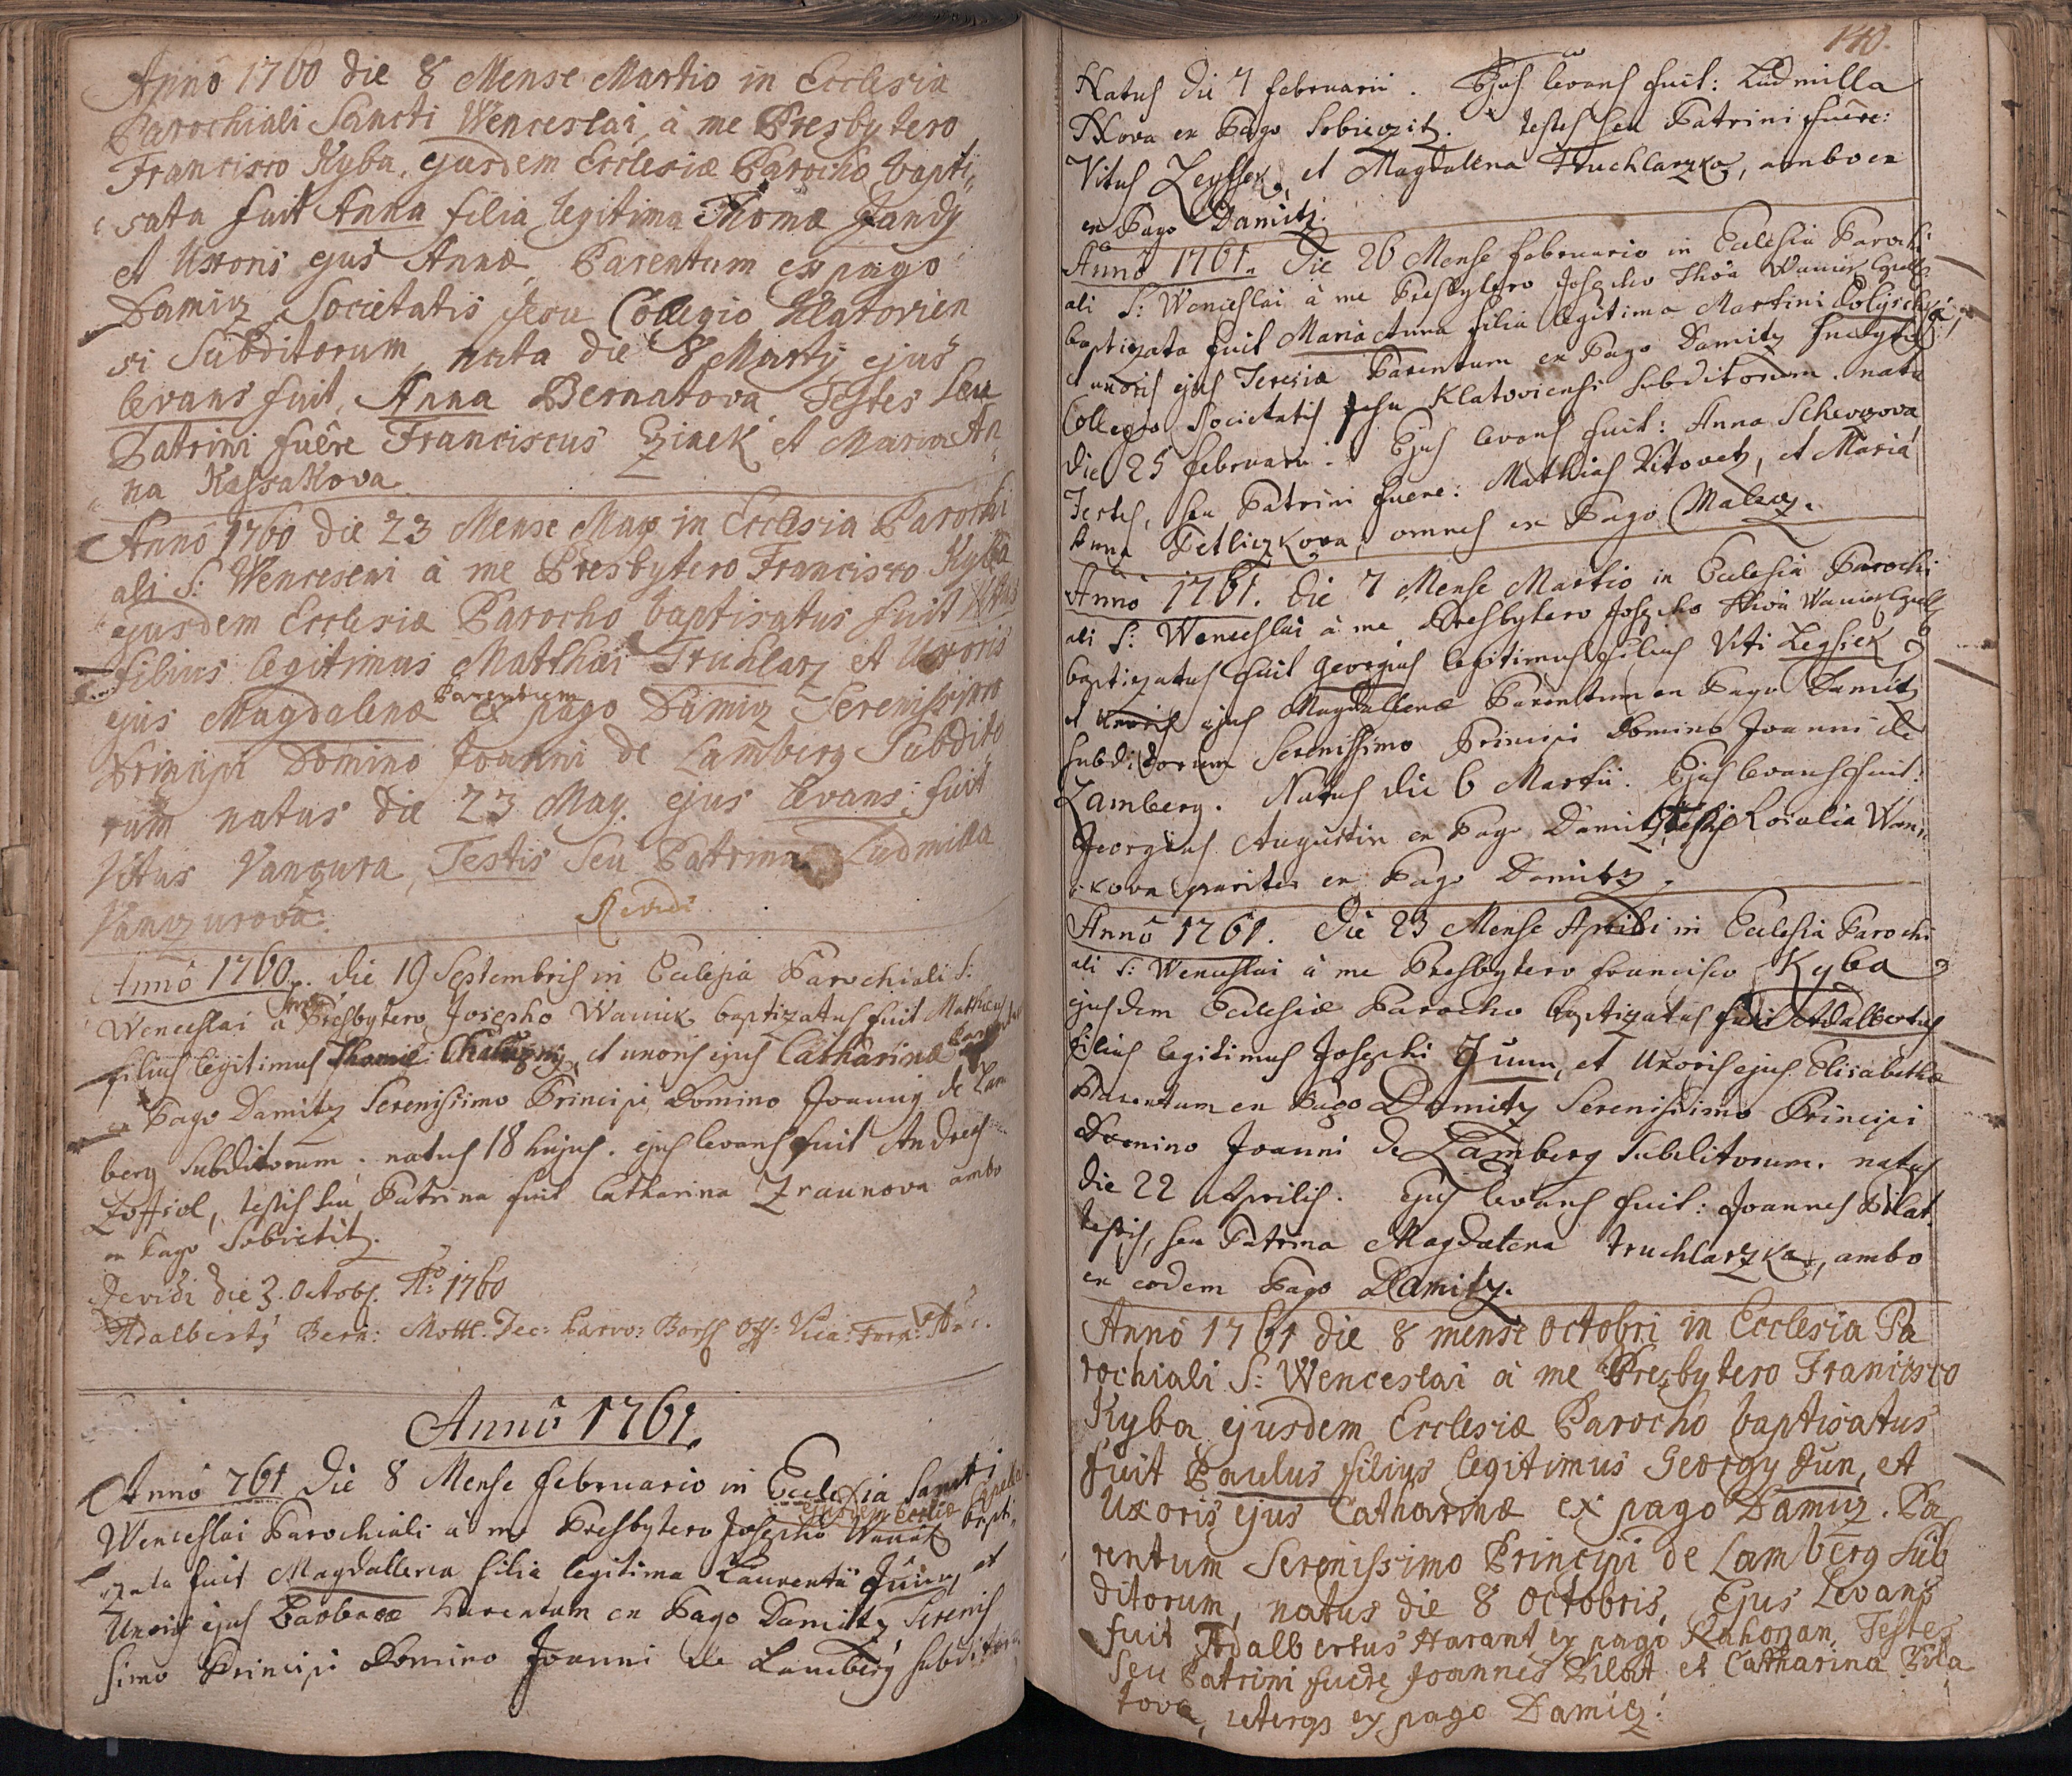 Anno 1760 die 8 Mense Martio in Ecclesia
Parochiali Sancti Wenceslai, à me Presbytero
Francisco Kyba, ejusdem Ecclesiæ Parocho bapti„
sata fuit Anna filia legitima Thomæ Jandy
et Uxoris ejus Annæ, Parentum ex pago
Damiz Societatis Jesu Collegio Klatovien
si Subditorum, nata die 8 Martÿ ejus
levans fuit, Anna Bernatova Testes Seu
Patrini fuêre Franciscus Zinek et Maria An
na Kassakova
Anno 1760 die 23 Mense May in Ecclesia Parochi
ali S: Wenceseni à me Presbytero Francisco Kyba
ejusdem Ecclesiæ Parocho baptisatus fuit Vitus
filius legitimus Matthæi Truhlarz et Uxoris
ejus Magdalenæ Parentum ex pago Damiz Serenissimo
Principi Domino Joanni de Lamberg Subdito
rum natus die 23 May. ejus levans fuit
Vitus Vanzura, Testis Seu Patrina Ludmilla
Vanzurova.
Revidi
Anno 1760. die 19 Septembris in Ecclesia Parochiali S:
Wenceslai à me Presbytero Josepho Waniek baptizatus fuit Mathæus
filius legitimus Thomæ Chalupny, et uxoris ejus Catharinæ
ex Pago Damitz Serenissimo Principi Domino Joanni de Lam
berg Subditorum. natus 18 hujus. ejus levans fuit Andreas
testis seu Patrina fuit Catharina Zraunova ambo
ex Pago Sobietitz.
Revidi die 3. Octobs. Ao: 1760
Adalberts Bern: Mottl. Dec:
Anno 1761.
Anno 761 Die 8 Mense Februario in Ecclesia Sancti
Wenceslai Parochiali à me Presbytero Josepho Waniek ejusdem Ecclæ bapti„
zata fuit Magdallena filia legitima Laurentii Juun, et
Uxoris ejus Barbaræ Parentum ex Pago Damitz Serenis
simo Principi Domino Joanni de Lamberg subditorum
140.
Natus die 7 februarii. Ejus levans fuit: Ludmilla
ex Pago Sobieszitz. testes seu Patrini fuêre:
Vitus Zeyssek, et Magdalena Truchlarzka, ambo ex
ex Pago Damitz.
Anno 1761. Die 26 Mense februario in Ecclesia Parochi
ali S: Wenceslai à me Presbytero Josepho Waniek
baptizata fuit Maria Anna filia legitima Martini
et uxoris ejus Teresiæ Parentum ex Pago Damitz
Collegio Societatis Jesu Klatoviensi subditorum. nata
die 25 februarii. Ejus levans fuit: Anna Schewzova
Testes, seu Patrini fuere: Mathias Vitovetz, et Maria
Anna Petliczkova, omnes ex Pago Malecz.
Anno 1761. die 7 Mense Martio in Ecclesia Parochi
ali S: Wenceslai à me Presbytero Josepho Waniek
baptizatus fuit Georgius legitimus filius Viti Zeysiek
et Uxoris ejus Magdallenæ Parentum ex Pago Damitz
subditorum Serenissimo Principi Domino Joanni de
Lamberg. Natus die 6 Martii. Ejus levans fuit:
Georgius Augustin ex Pago Damitz, testis Rosalia Wan„
„kova pariter ex Pago Damitz.
Anno 1761. Die 23 Mense Aprili in Ecclesia Parochi
ali S: Wenceslai à me Presbytero Francisco Kyba
ejusdem Ecclesiæ Parocho baptizatus fuit Adalbertus
filius legitimus Josephi Juun, et Uxoris ejus Elisabethæ
Parentum ex Pago Damitz Serenissimo Principi
Domino Joanni de Lamberg Subditorum. natus
die 22 Aprilis. Ejus levans fuit: Joannes Pilat.
testis, seu Patrina Magdalena Truchlarzka, ambo
ex eodem Pago Damitz.
Anno 1761 die 8 mense Octobri in Ecclesia Pa
rochiali S: Wenceslai à me Presbytero Francisco
Kyba ejusdem Ecclesiæ Parocho baptisatus
fuit Paulus filius legitimus Georgy Jun, et
Uxoris ejus Catharinæ ex pago Damiz. Pa
rentum Serenissimo Principi de Lamberg Sub
ditorum, natus die 8 Octobris, Ejus Levans
fuit Adalbertus Harant ex pago Testes
Seu Patrini fuere Joannes Pilat et Catharina Pila
tova, ex pago Damicz.